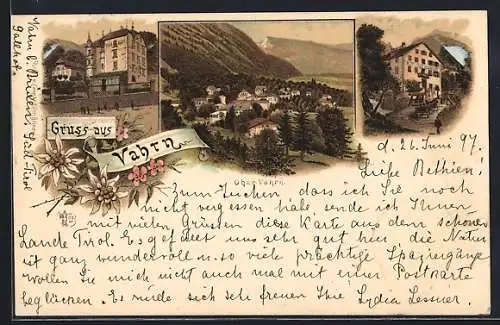 Gruss aus
Vahrn
Ober-Vahrn.
Vahrn b/
Brixen, Süd. Tirol
d. 26. Juni 97.
Liebe Bethien!
Zum Zeichen, dass ich Sie noch
nicht vergessen habe sende ich Ihnen
mit vielen Grüssen diese Karte aus dem schönen
Lande Tirol. Es gefället uns sehr gut hier die Natur
ist ganz wundervoll u. so viele prächtige Spaziergänge
Wollen Sie mich nicht auch mal mit einer Postkarte
beglücken. Es würde sich sehr freuen Ihre Lydia Lessner.